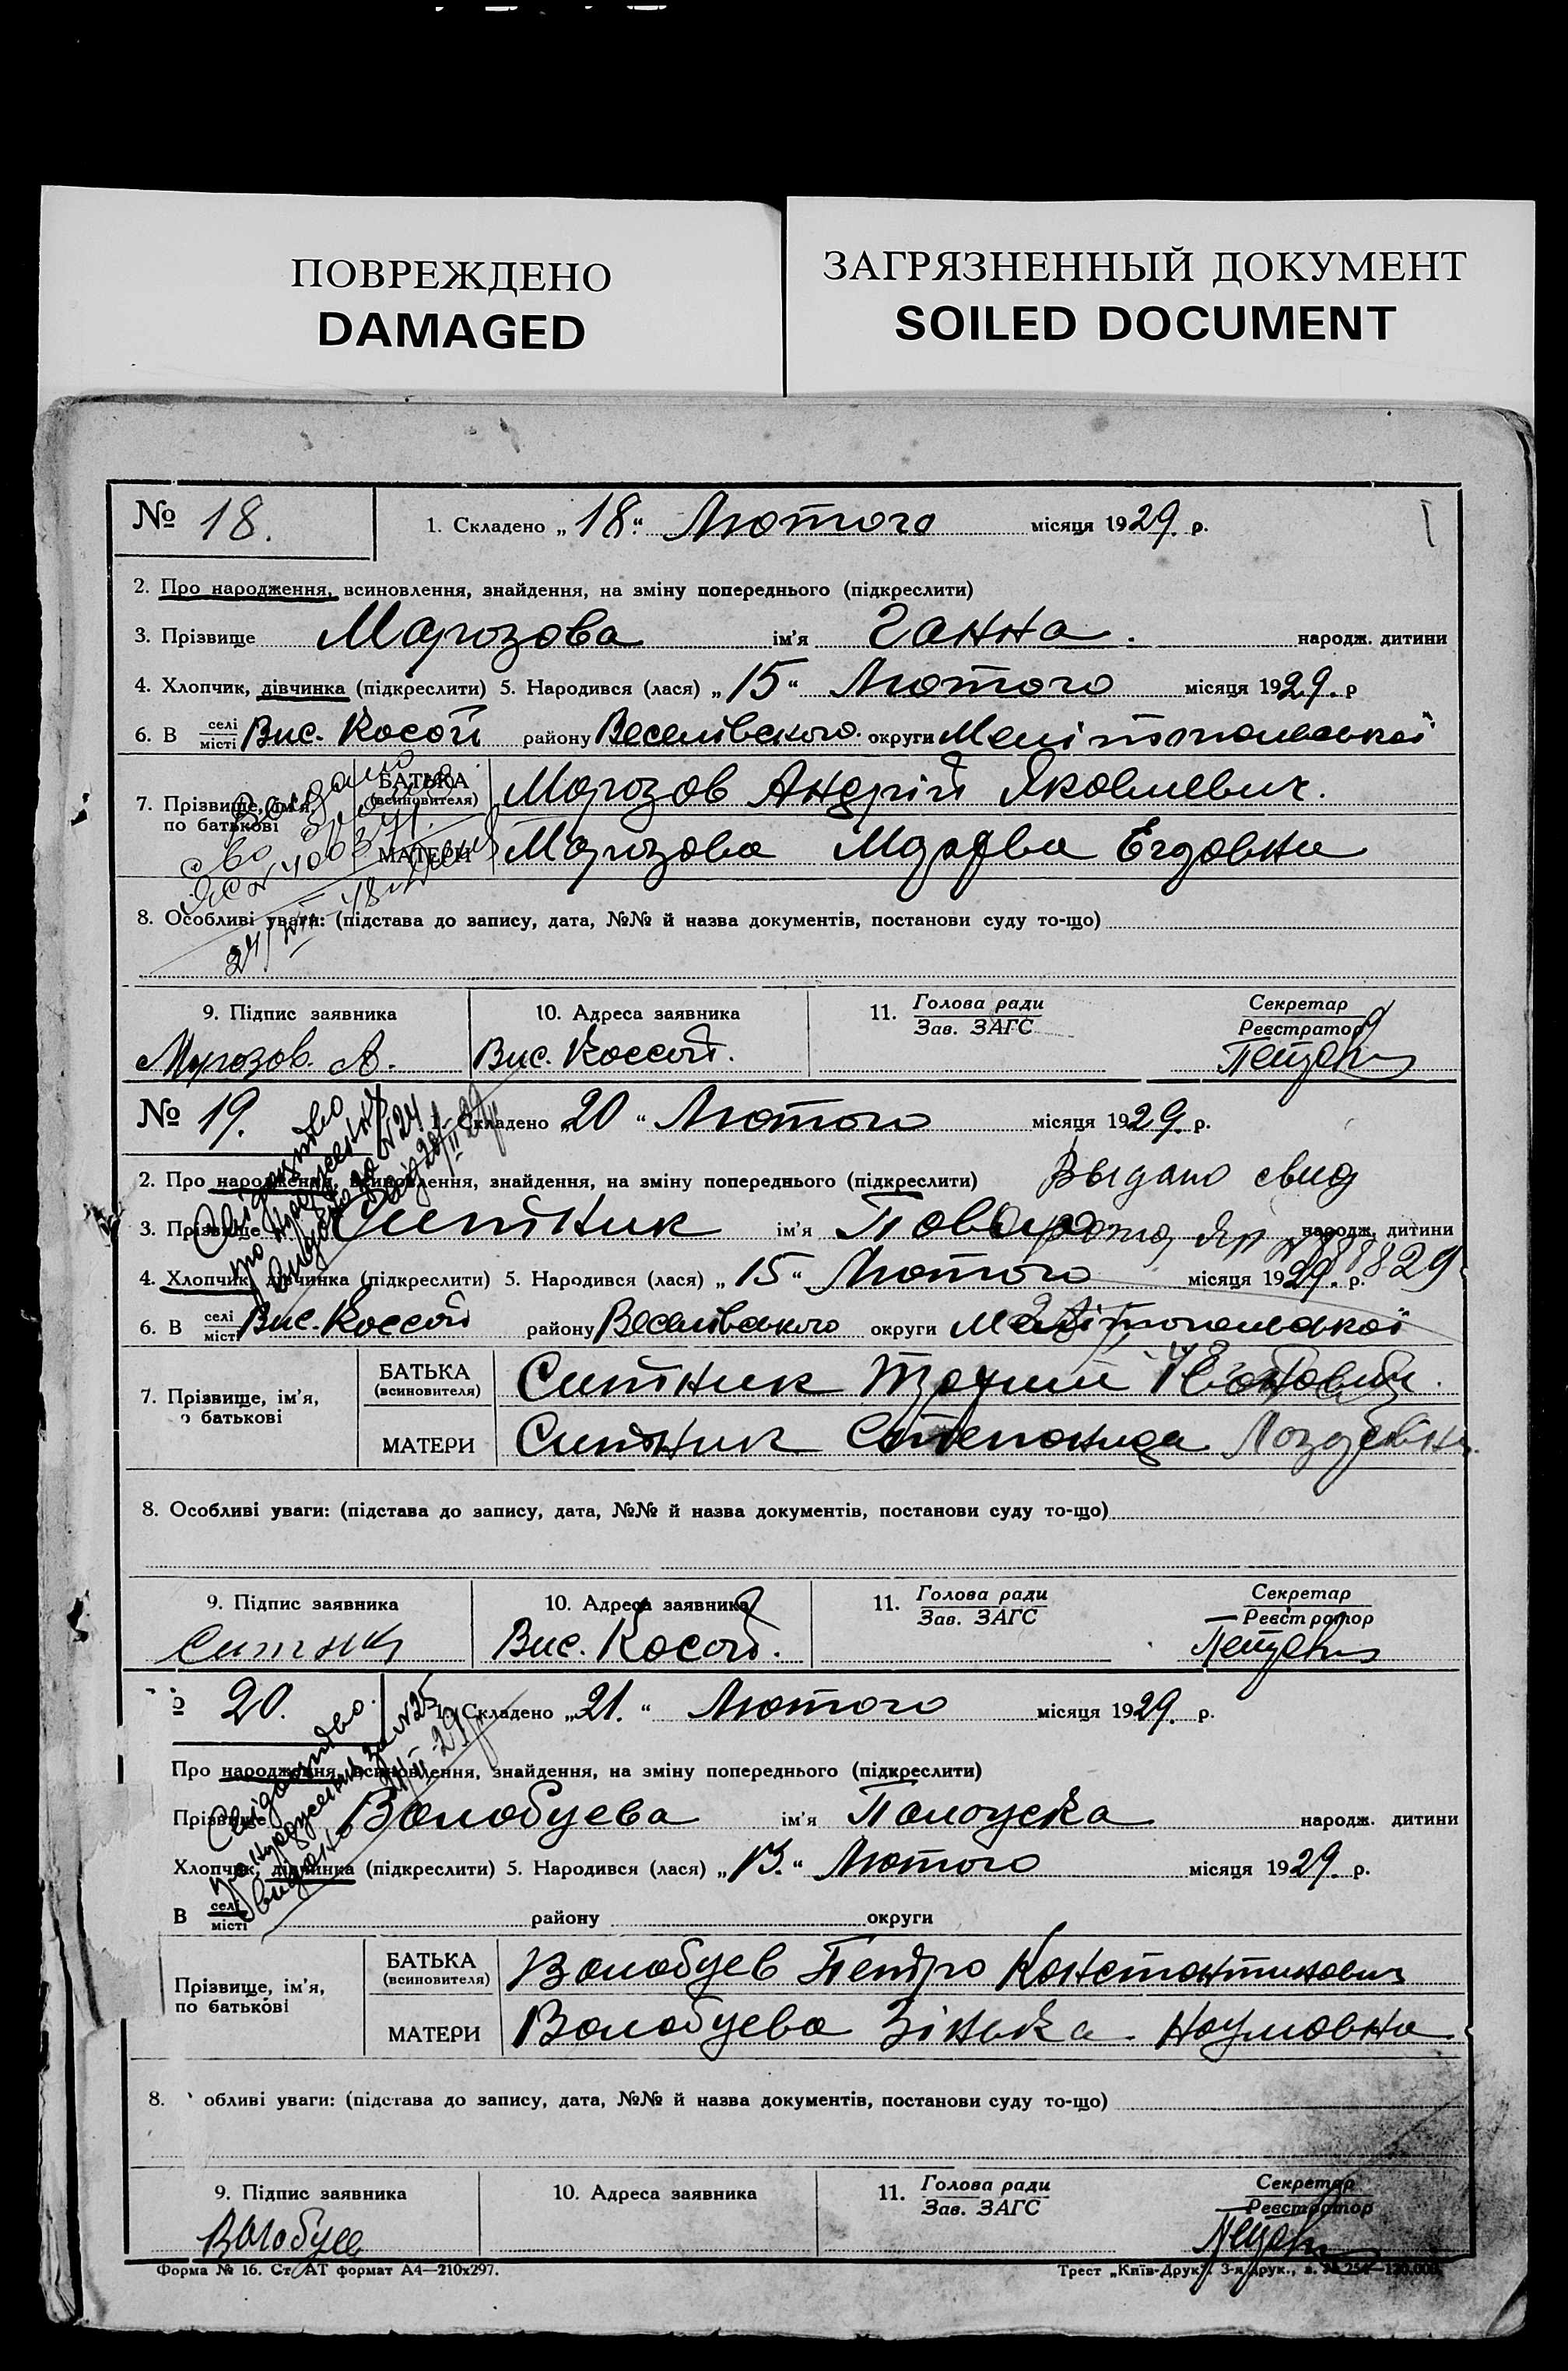 ПОВРЕЖДЕНО
DAMAGED
ЗАГРЯЗНЕННЫЙ ДОКУМЕНТ
SOILED DOCUMENT
№ 18.
1. Складено „18“ Лютого місяця 1929. р.
2. Про народження, всиновлення, знайдення, на зміну попереднього (підкреслити)
3. Прізвище Марозова ім'я Ганна. народж. дитини
4. Хлопчик, дівчинка (підкреслити) 5. Народився (лася) „15“ Лютого місяця 1929. р
6. В селі місті Вис. Косой району Веселівского. округи Мелітопольскої
7. Прізвище, ім'я, по батькові
БАТЬКА (всиновителя) Морозов Андрій Яковлевич.
МАТЕРИ Марозова
8. Особливі уваги: (підстава до запису, дата, №№ й назва документів, постанови суду то-що)
9. Підпис заявника
10. Адреса заявника
11. Голова ради Зав. ЗАГС
Секретар Реєстратор
Морозов. А.
Вис. Коссой.
№ 19.
1. Складено 20 “ Лютого місяця 1929. р.
2. Про народження, всиновлення, знайдення, на зміну попереднього (підкреслити)
Выдано свид
3. Прізвище Ситник ім'я народж. дитини
4. Хлопчик, дівчинка (підкреслити) 5. Народився (лася) „15“ Лютого місяця 1929. р.
6. В селі місті Вис. Коссой району Веселівського округи Мелітопольскої
7. Прізвище, ім'я, о батькові
БАТЬКА (всиновителя) Ситник
МАТЕРИ Ситник Степанида
8. Особливі уваги: (підстава до запису, дата, №№ й назва документів, постанови суду то-що)
9. Підпис заявника
10. Адреса заявника
11. Голова ради Зав. ЗАГС
Секретар Реєстратор
Ситник
Вис. Косой.
20.
1. Складено „21.“ Лютого місяця 1929. р.
Про народження, всиновлення, знайдення, на зміну попереднього (підкреслити)
Прізвище Волобуева ім'я народж. дитини
Хлопчик, дівчинка (підкреслити) 5. Народився (лася) „13.“ Лютого місяця 1929. р.
В селі місті району округи
Прізвище, ім'я, по батькові
БАТЬКА (всиновителя) Волобуев Петро Константинович
МАТЕРИ Волобуева Зінька Наумовна
8. обливі уваги: (підстава до запису, дата, №№ й назва документів, постанови суду то-що)
9. Підпис заявника
10. Адреса заявника
11. Голова ради Зав. ЗАГС
Секретар Реєстратор
Волобуев
Форма № 16. Ст АТ формат А4—210х297.
Трест „Київ-Друк“. 3-я друк.,